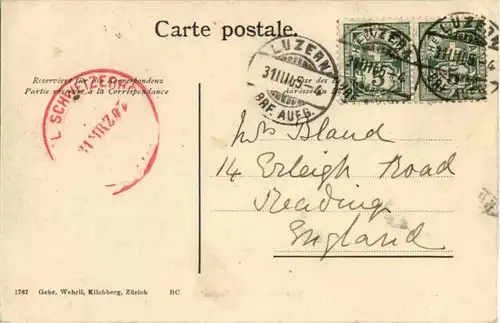 Carte postale.
Reserviert für die Korrespondenz
Partie réservée à la Correspondance
LUZERN
31.III.05-4
BRF. AUFG.
LUZERN
BRF. AUFG.
31 MRZ. 07
Mrs Bland
14 Erleigh Road
Reading
England
1767 Gebr. Wehrli, Kilchberg, Zürich BC